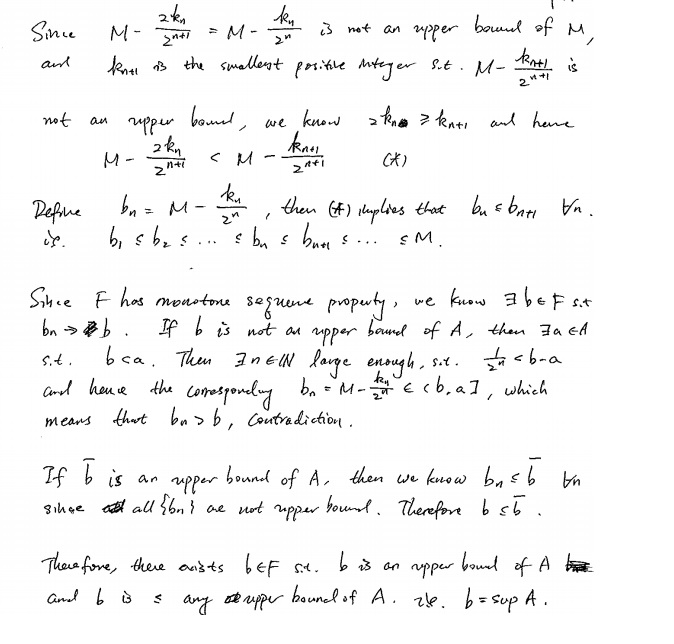 Since M - 2k_n/2^{n+1} = M - k_n/2^n is not an upper bound of M,
and k_{n+1} is the smallest positive integer s.t. M - k_{n+1}/2^{n+1} is
not an upper bound, we know 2k_n ≥ k_{n+1} and hence
M - 2k_n/2^{n+1} < M - k_{n+1}/2^{n+1} (*)
Define b_n = M - k_n/2^n, then (*) implies that b_n ≤ b_{n+1} ∀n.
ie. b_1 ≤ b_2 ≤ ... ≤ b_n ≤ b_{n+1} ≤ ... ≤ M.
Since F has monotone sequence property, we know ∃ b ∈ F s.t
b_n → b. If b is not an upper bound of A, then ∃a ∈ A
s.t. b < a. Then ∃n ∈ ℕ large enough, s.t. 1/2^n < b-a
and hence the corresponding b_n = M - k_n/2^n ∈ (b, a], which
means that b_n > b, contradiction.
If b̄ is an upper bound of A, then we know b_n ≤ b̄ ∀n
since all {b_n} are not upper bound. Therefore b ≤ b̄.
Therefore, there exists b ∈ F s.t. b is an upper bound of A
and b is ≤ any upper bound of A. ie. b = sup A.